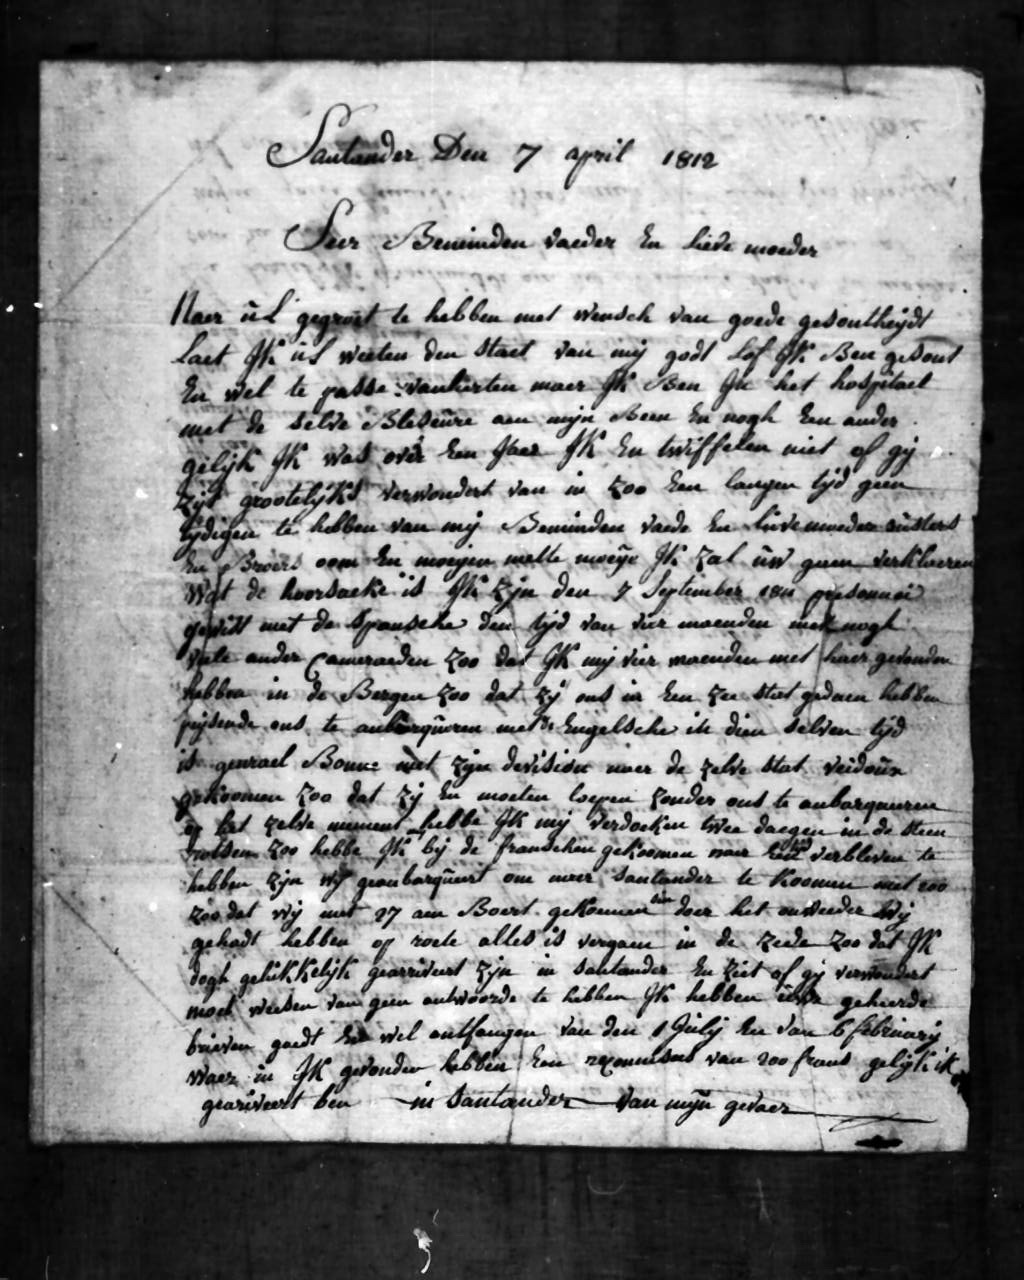 Santander Den 7 april 1812
Seer Beminden vaeder En Lieve moeder
Naer ul gegroet te hebben met wensch van goede gesontheijdt
Laet Jk ul weeten den staet van mij godt Lof Jk Ben gesont
En wel te passe van herten maer Jk Ben Jn het hospitael
met de selve Blesure aen mijn Been En nogh Een ander
gelijk Jk was over Een Jaer Jk En twiffelen niet of gij
zijt grootelijks verwondert van in zoo Een langen tijd geen
tijdigen te hebben van mij Beminden vaede En lieve moeder susters
En Broers oom En moeijen mette moeije Jk zal uw geen verklaeren
Wat de hoorsaeke is Jk zijn den 7 September 1811 presonnei
geweest met de Spansche den tijd van vier maenden met nogh
veele ander Cameraeden zoo dat Jk mij vier maenden met haer gevonden
hebben in de Bergen zoo dat zij ons in Een zee stat gedaen hebben
pijsende ons te anbarquren met Engelsche in dien selven tijd
is genrael Bonne met zijn devision naer de zelve stat
gekoomen zoo dat zij En moeten loepen zonder ons te anbarqueren
op het zelve mument hebbe Jk mij verdocken twee daegen in de steen
rotsen zoo hebbe Jk bij de franschen gekoomen naer verbleven te
hebben zijn wij geanbarqueert om naer Santander te koomen met 200
zoo dat wij met 27 aen Boert gekoemen doer het onweeder wij
gehadt hebben op roete alles is vergaen in de zeede zoo dat Jk
dogh gelukkelijk gearriveert zijn in Santander En ziet of gij verwondert
moet weesen van geen antwoorde te hebben Jk hebben geheerde
brieven goedt En wel ontfangen van den 1 Julij En van 6 februarij
waer in Jk gevonden hebben Een van 200 frans gelijk ik
geariveert ben in Santander van mijn gevaer